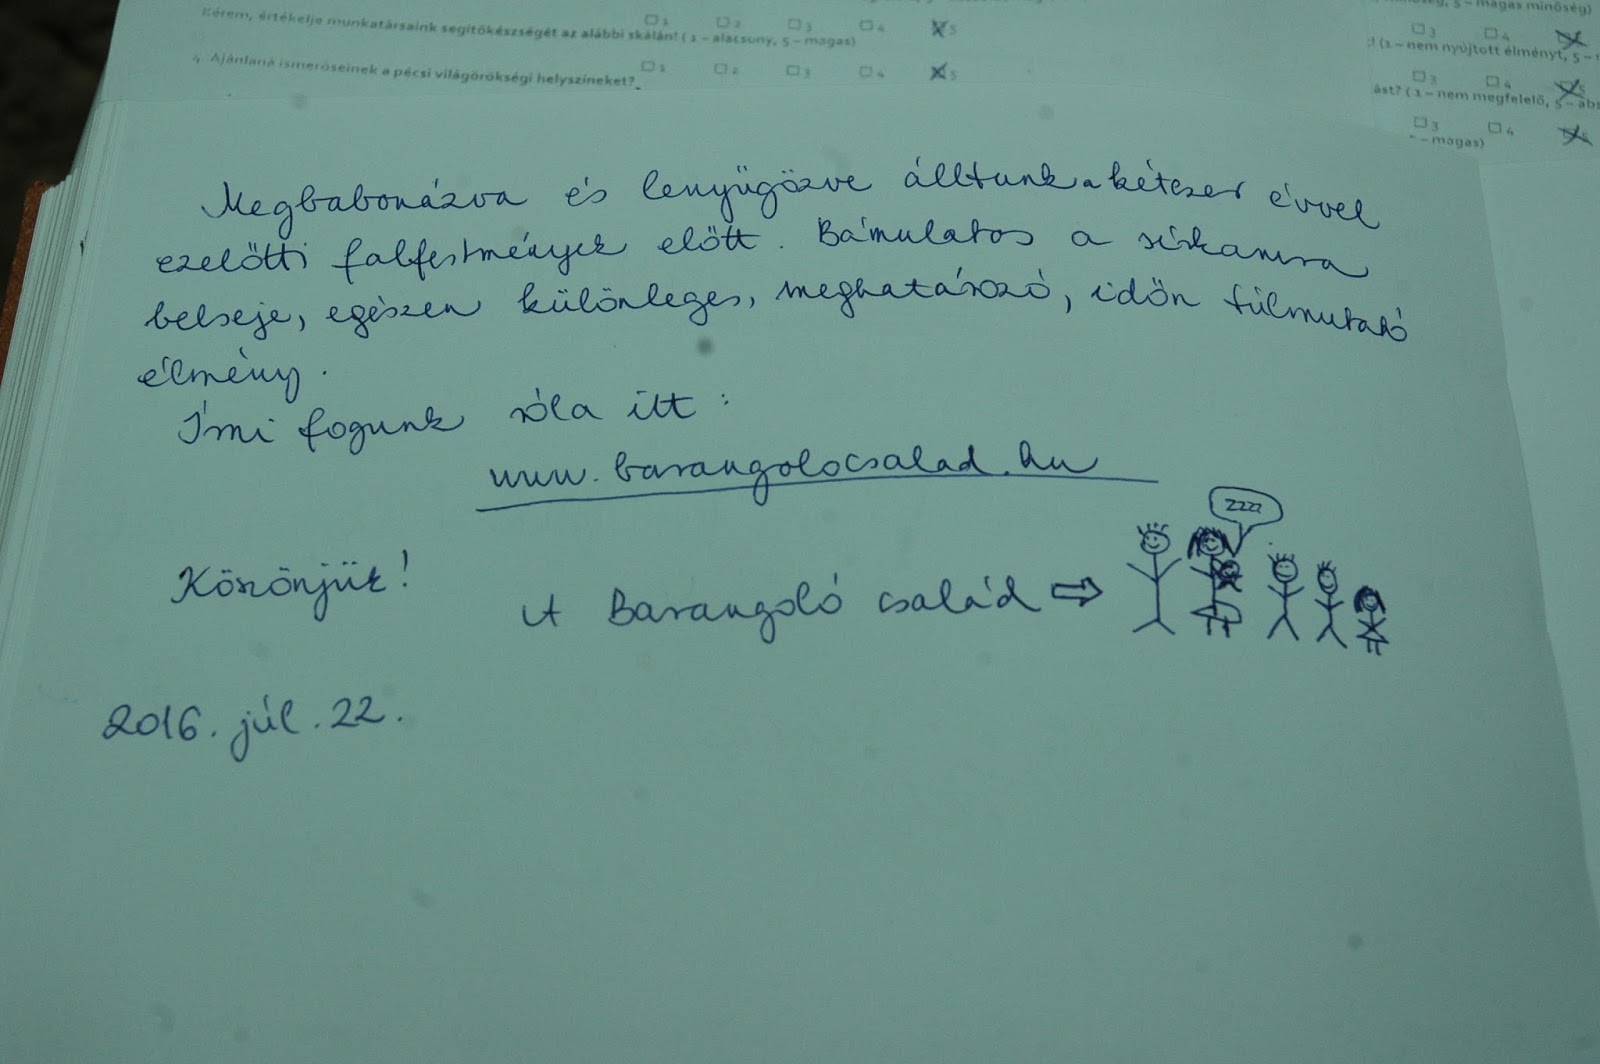 Kérem, értékelje munkatársaink segítőkészségét az alábbi skálán! ( 1 – alacsony, 5 – magas) 1 2 3 4 5
4. Ajánlaná ismerőseinek a pécsi világörökségi helyszíneket? 1 2 3 4 5
5 – magas minőség)
3 4
! (1 – nem nyújtott élményt, 5 –
3 4 5
ást? ( 1 – nem megfelelő, 5 – abs
3 4 5
– magas)
Megbabonázva és lenyűgözve álltunk a kétezer évvel
ezelőtti falfestmények előtt. Bámulatos a sírkamra
belseje, egészen különleges, meghatározó, időn túlmutató
élmény.
Írni fogunk róla itt:
www.barangolocsalad.hu
zzzz
Köszönjük!
A Barangoló család ⇨
2016. júl. 22.